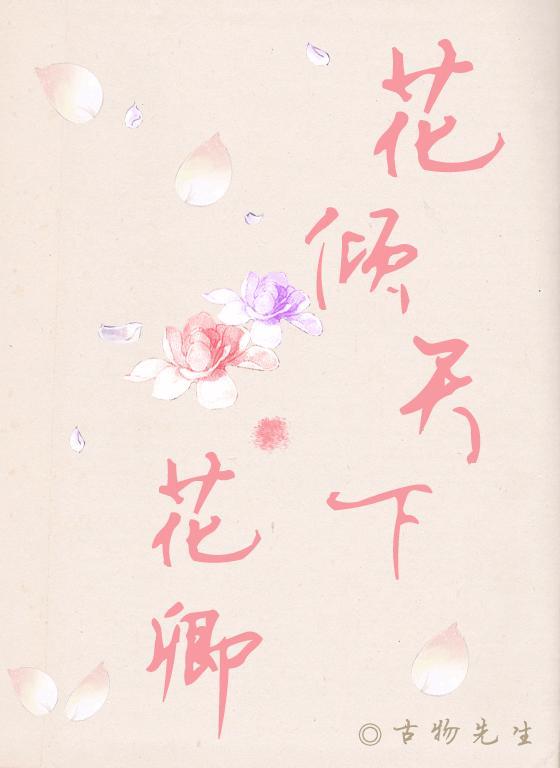 花倾天下
花卿
◎古物先生